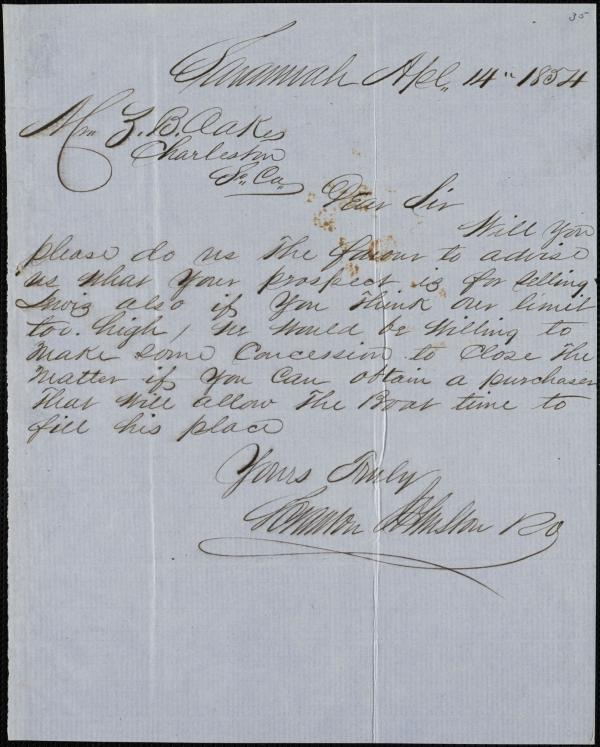 35
Savannah Apl. 14" 1854
Z. B. Oakes
Charleston
So. Ca.
Dear Sir
Will you
please do us the favour to advise
us what your prospect is for selling
Lewis also if you think our limit
too high, we would be willing to
make some concession to close the
matter if you can obtain a purchaser
that will allow the Boat time to
fill his place
Yours Truly
Johnston & Co